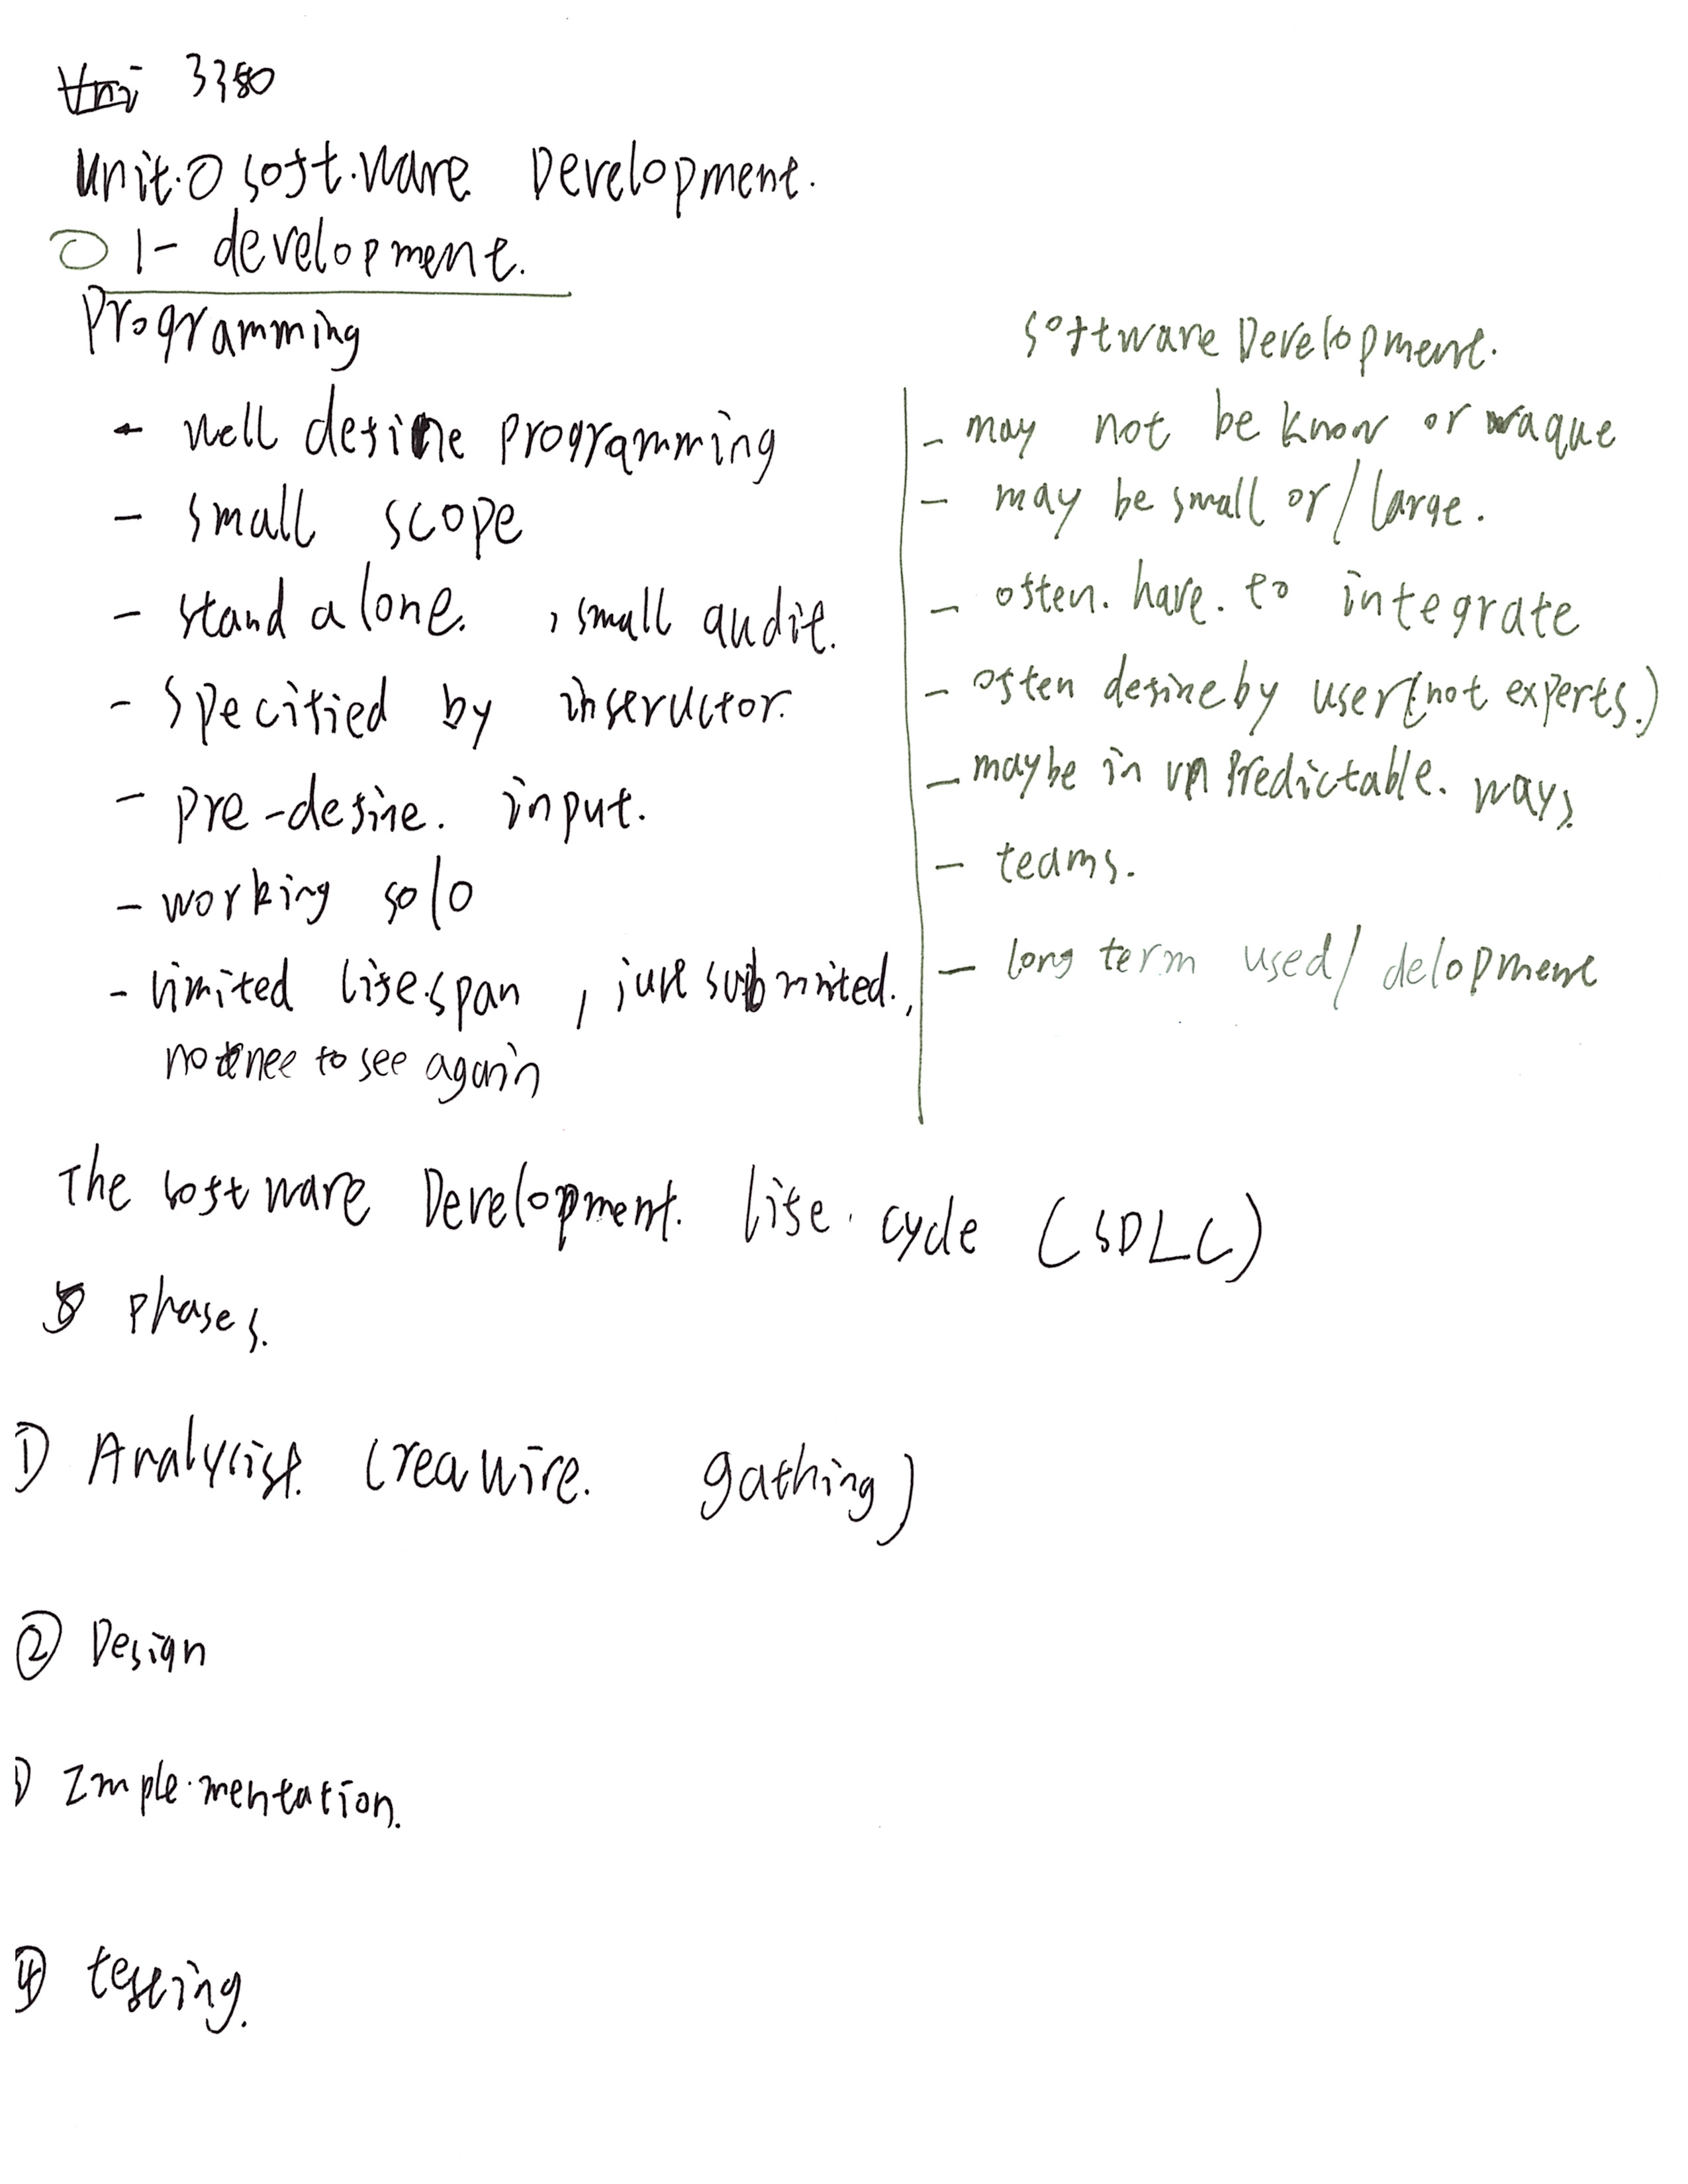 3380
Unit 0 software Development.
01- development.
Programming
- well define programming
- small scope
- stand alone. , small audit.
- specified by instructor.
- pre-define. input.
- working solo
- limited life span , just submited.,
no nee to see again
software Development.
- may not be know or vaque
- may be small or/large.
- often. have. to integrate
- often define by user(not experts.)
- maybe in unpredictable. ways.
- teams.
- long term used/ delopment
The software Development. life. cycle (SDLC)
5 phases.
① Analysist. (reauire. gathing)
② Design
Implementation.
④ testing.